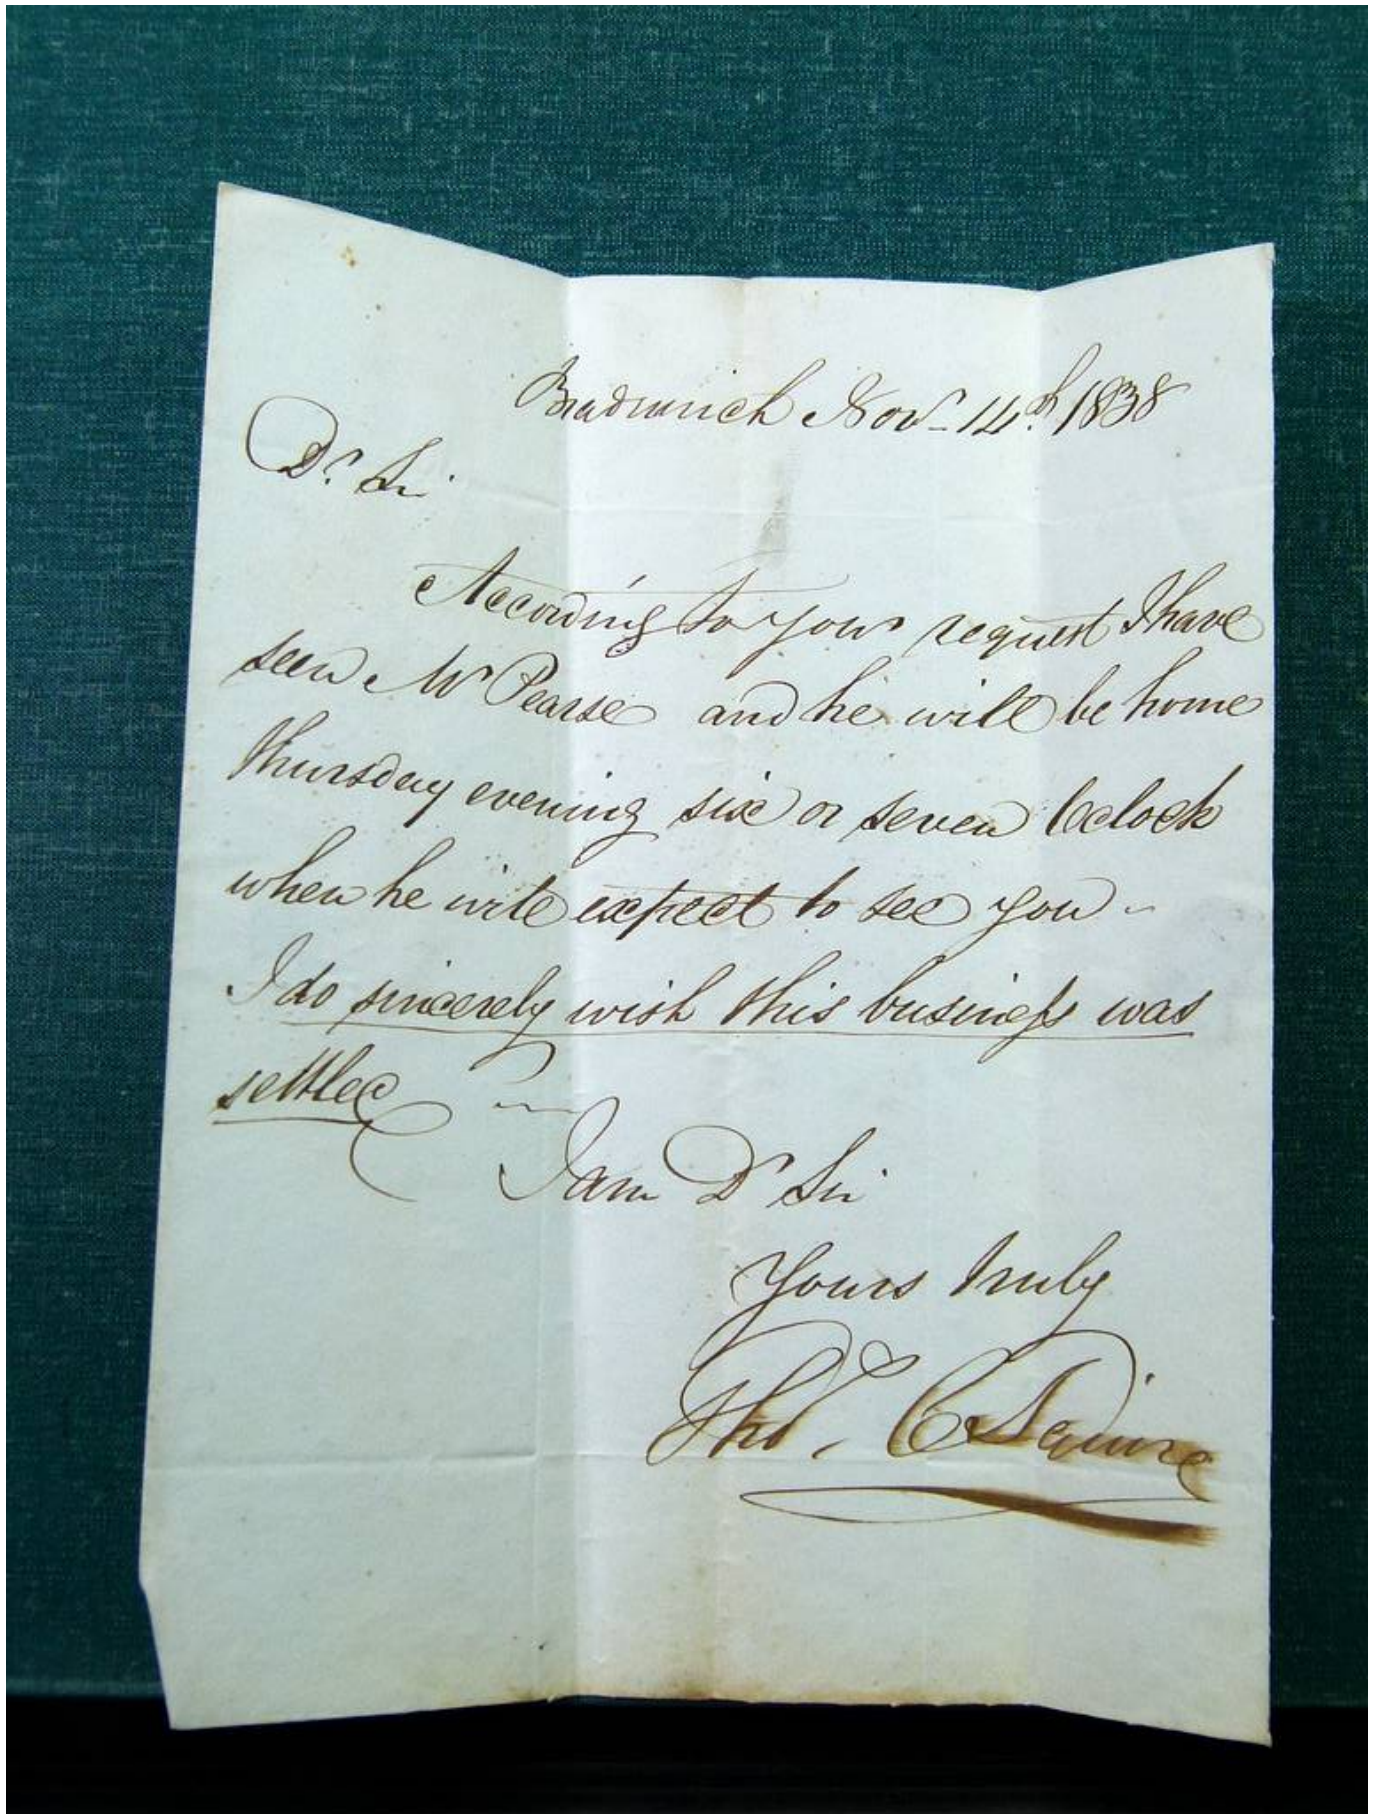 Bradninch Nov. 14th 1838
Dr. Sir
According to your request I have
seen Mr Pearse and he will be home
thursday evening six or seven Oclock
when he will expect to see you -
I do sincerely wish this business was
settled
I am Dr Sir
Yours truly
Thos. C Squire